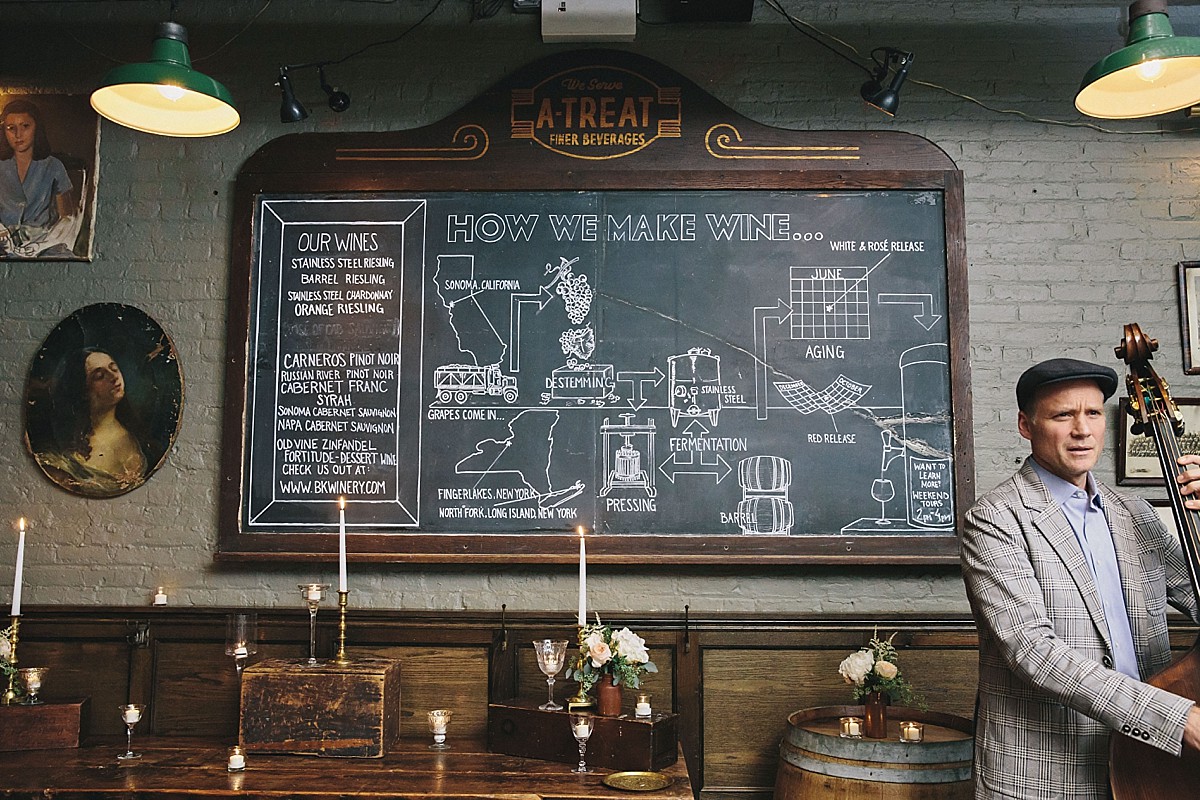 We Serve
A-TREAT
FINER BEVERAGES
OUR WINES
STAINLESS STEEL RIESLING
BARREL RIESLING
STAINLESS STEEL CHARDONNAY
ORANGE RIESLING
CARNEROS PINOT NOIR
RUSSIAN RIVER PINOT NOIR
CABERNET FRANC
SYRAH
SONOMA CABERNET SAUVIGNON
NAPA CABERNET SAUVIGNON
OLD VINE ZINFANDEL
FORTITUDE-DESSERT WINE
CHECK US OUT AT:
WWW.BKWINERY.COM
HOW WE MAKE WINE...
SONOMA, CALIFORNIA
GRAPES COME IN...
FINGERLAKES, NEW YORK
NORTH FORK, LONG ISLAND, NEW YORK
DESTEMMING
PRESSING
STAINLESS
STEEL
FERMENTATION
BARREL
WHITE & ROSÉ RELEASE
JUNE
AGING
DECEMBER
OCTOBER
RED RELEASE
WANT TO
LEARN
MORE?
WEEKEND
TOURS
2pm-4pm